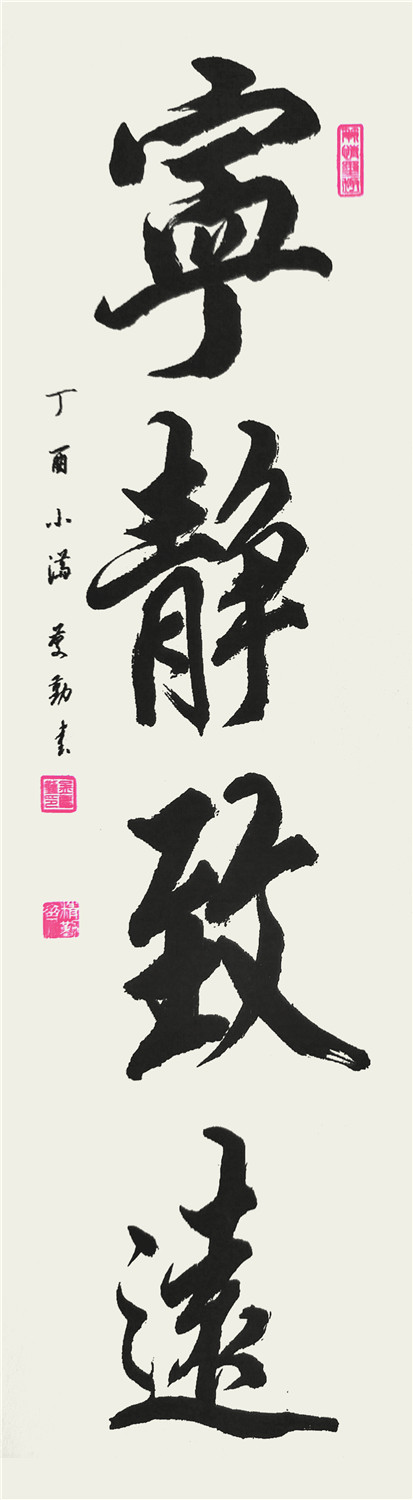 寧靜致遠
丁酉小滿
勤書